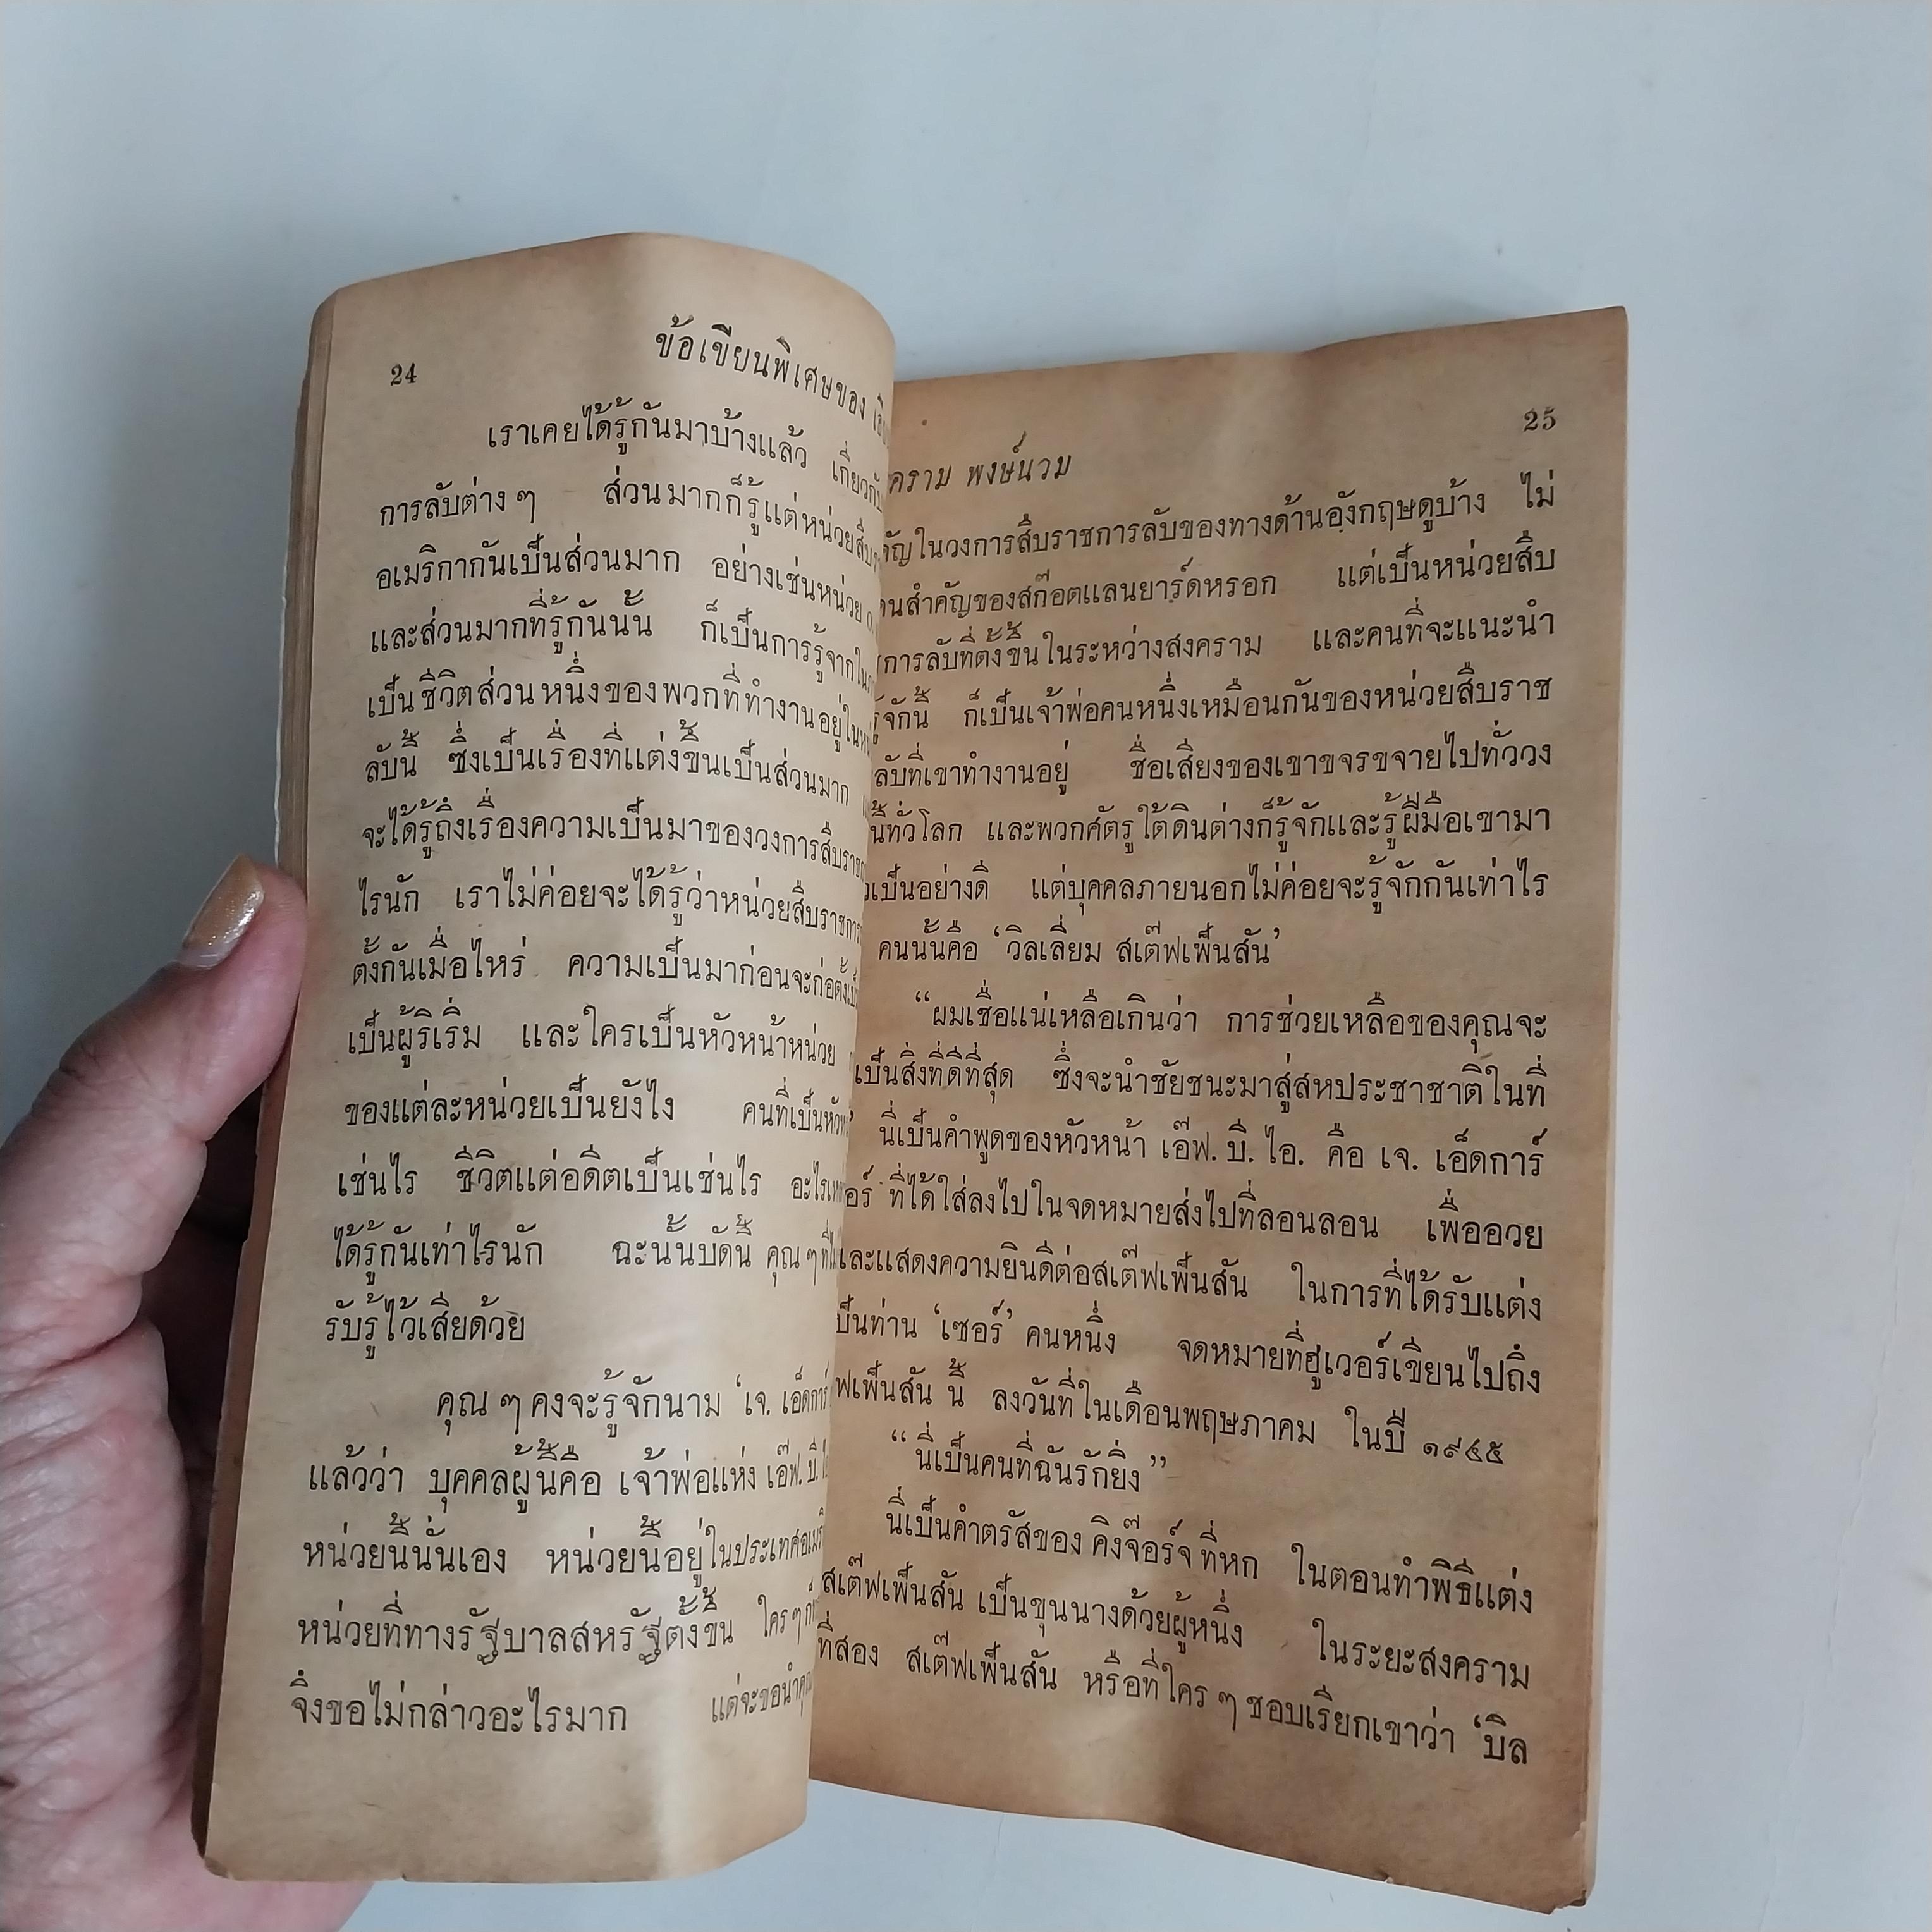 24
ข้อเขียนพิเศษของ
เราเคยได้รู้กันมาบ้างแล้ว
การลับต่าง ๆ ส่วนมากก็รู้แต่หน่วยสืบ
อเมริกากันเป็นส่วนมาก อย่างเช่นหน่วย
และส่วนมากที่รู้กันนั้น ก็เป็นการรู้จาก
เป็นชีวิตส่วนหนึ่งของพวกที่ทำงานอยู่ใน
ลับนี้ ซึ่งเป็นเรื่องที่แต่งขึ้นเป็นส่วนมาก
จะได้รู้ถึงเรื่องความเป็นมาของวงการสืบราช
ไรนัก เราไม่ค่อยจะได้รู้ว่าหน่วยสืบราชการ
ตั้งกันเมื่อไหร่ ความเป็นมาก่อนจะก่อตั้ง
เป็นผู้ริเริ่ม และใครเป็นหัวหน้าหน่วย
ของแต่ละหน่วยเป็นยังไง คนที่เป็น
เช่นไร ชีวิตแต่อดีตเป็นเช่นไร
ได้รู้กันเท่าไรนัก ฉะนั้นบัดนี้ คุณ ๆ
รับรู้ไว้เสียด้วย
คุณ ๆ คงจะรู้จักนาม ‘เจ. เอ็ดการ์
แล้วว่า บุคคลผู้นี้คือ เจ้าพ่อแห่ง เอ๊ฟ. บี.
หน่วยนี้นั่นเอง หน่วยนี้อยู่ในประเทศ
หน่วยที่ทางรัฐบาลสหรัฐตั้งขึ้น ใคร ๆ
จึงขอไม่กล่าวอะไรมาก แต่จะขอนำ
25
คราม พงษ์นวม
ในวงการสืบราชการลับของทางด้านอังกฤษดูบ้าง ไม่
สำคัญของสก๊อตแลนยาร์ดหรอก แต่เป็นหน่วยสืบ
การลับที่ตั้งขึ้นในระหว่างสงคราม และคนที่จะแนะนำ
จักนี้ ก็เป็นเจ้าพ่อคนหนึ่งเหมือนกันของหน่วยสืบราช
ลับที่เขาทำงานอยู่ ชื่อเสียงของเขาขจรขจายไปทั่ววง
นี้ทั่วโลก และพวกศัตรูใต้ดินต่างก็รู้จักและรู้ฝีมือเขามา
เป็นอย่างดี แต่บุคคลภายนอกไม่ค่อยจะรู้จักกันเท่าไร
คนนั้นคือ ‘วิลเลี่ยม สเต๊ฟเพื้นสัน’
“ผมเชื่อแน่เหลือเกินว่า การช่วยเหลือของคุณจะ
เป็นสิ่งที่ดีที่สุด ซึ่งจะนำชัยชนะมาสู่สหประชาชาติในที่
นี่เป็นคำพูดของหัวหน้า เอ๊ฟ. บี. ไอ. คือ เจ. เอ็ดการ์
อร์ ที่ได้ใส่ลงไปในจดหมายส่งไปที่ลอนลอน เพื่ออวย
และแสดงความยินดีต่อสเต๊ฟเพื้นสัน ในการที่ได้รับแต่ง
เป็นท่าน ‘เซอร์’ คนหนึ่ง จดหมายที่ฮูเวอร์เขียนไปถึง
ฟเพื้นสัน นี้ ลงวันที่ในเดือนพฤษภาคม ในปี ๑๙๔๕
“ นี่เป็นคนที่ฉันรักยิ่ง ”
นี่เป็นคำตรัสของ คิงจ๊อร์จ ที่หก ในตอนทำพิธีแต่ง
สเต๊ฟเพื้นสัน เป็นขุนนางด้วยผู้หนึ่ง ในระยะสงคราม
ที่สอง สเต๊ฟเพื้นสัน หรือที่ใคร ๆ ชอบเรียกเขาว่า ‘บิล